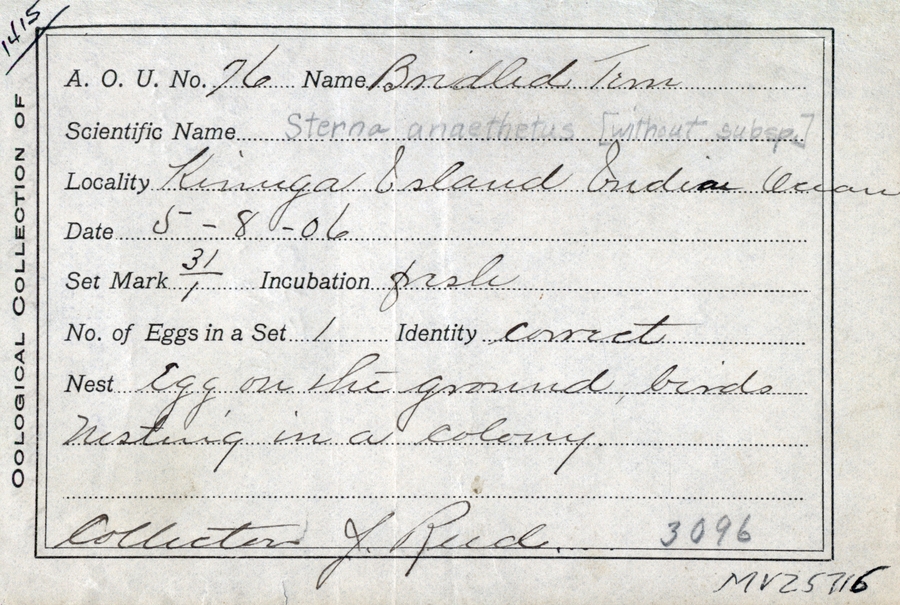 1415
OOLOGICAL COLLECTION OF
A. O. U. No. 76 Name Bridled Tern
Scientific Name Sterna anaethetus [without subsp.]
Locality Island Indian Ocean
Date 5-8-06
Set Mark 31/1 Incubation fresh
No. of Eggs in a Set 1 Identity correct
Nest Egg on the ground, birds
nesting in a colony.
Collector J.
3096
MVZ5716